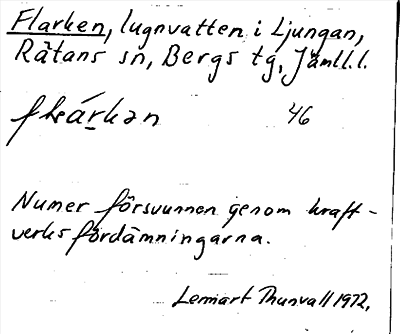 Flarken, lugnvatten i Ljungan,
Rätans sn, Bergs tg, Jämtl.l.
46
Numer försvunnen genom kraft-
verksfördämningarna.
Lennart Thunvall 1972.